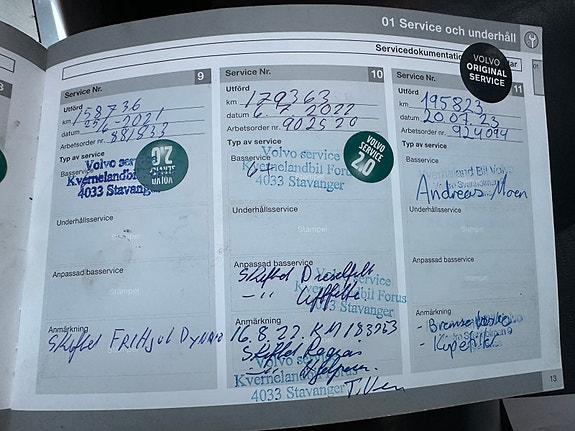 01 Service och underhåll
Servicedokumentation
VOLVO
ORIGINAL
SERVICE
Service Nr. 9
Utförd
km 158736
datum 25/6-2021
Arbetsorder nr. 881533
Typ av service
Basservice
Volvo service
Kvernelandbil Forus
4033 Stavanger
VOLVO
SERVICE
2.0
Underhållsservice
Stämpel
Anpassad basservice
Stämpel
Anmärkning
Skiftet FRIHjul DYNAMO
Service Nr. 10
Utförd
km 179363
datum 6.7.2022
Arbetsorder nr. 902520
Typ av service
Basservice
Volvo service
Kvernelandbil Forus
4033 Stavanger
VOLVO
SERVICE
2.0
Underhållsservice
Stämpel
Anpassad basservice
Skiftet Dieselfilt
-"- Luftfilte
Volvo service
Kvernelandbil Forus
4033 Stavanger
Anmärkning
16.8.22 KM 183263
Skiftet
Volvo service
Kvernelandbil Forus
4033 Stavanger
Service Nr. 11
Utförd
km 195823
datum 20.07.23
Arbetsorder nr. 924094
Typ av service
Basservice
Andreas Moen
Underhållsservice
Stämpel
Anpassad basservice
Stämpel
Anmärkning
- Kupefilt
13